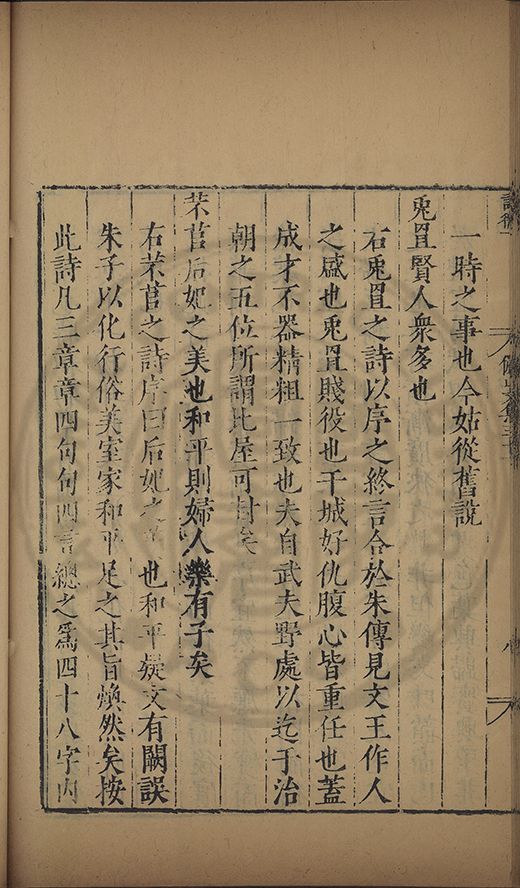 一時之事也今姑從舊說
兎罝賢人衆多也
右兎罝之詩以序之終言合於朱傳見文王作人
之盛也兎罝賤役也干城好仇腹心皆重任也蓋
成才不器精粗一致也夫自武夫野處以迄于治
朝之五位所謂比屋可封矣
芣苢后妃之美也和平則婦人樂有子矣
右芣苢之詩序曰后妃之美也和平疑文有闕誤
朱子以化行俗美室家和平足之其旨煥然矣按
此詩凡三章章四句句四言總之爲四十八字內